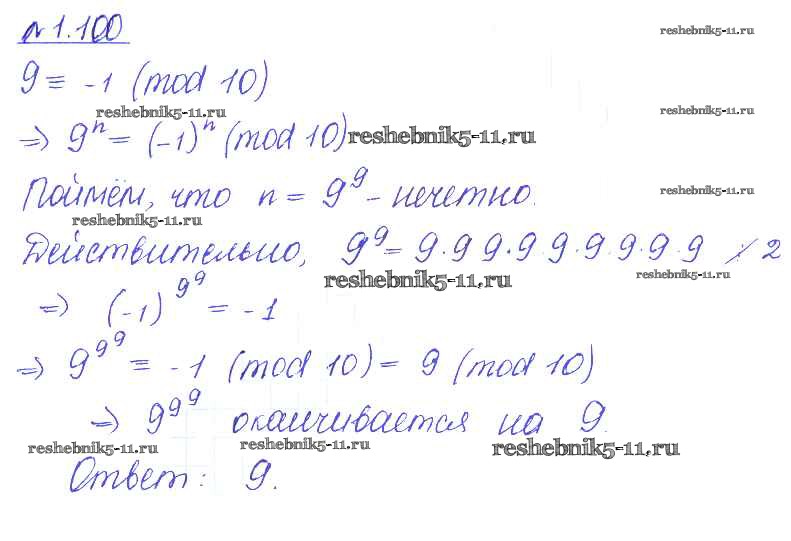 №1.100
reshebnik5-11.ru
9 ≡ -1 (mod 10)
reshebnik5-11.ru
reshebnik5-11.ru
⇒ 9ⁿ = (-1)ⁿ (mod 10)
reshebnik5-11.ru
Поймём, что n = 9⁹ - нечетно.
reshebnik5-11.ru
reshebnik5-11.ru
Действительно, 9⁹ = 9·9 9·9 9·9·9·9·9 ⋮̸ 2
reshebnik5-11.ru
reshebnik5-11.ru
⇒ (-1)^9^9 = -1
⇒ 9^9^9 ≡ -1 (mod 10) = 9 (mod 10)
⇒ 9^9^9 оканчивается на 9.
reshebnik5-11.ru
reshebnik5-11.ru
reshebnik5-11.ru
Ответ: 9.